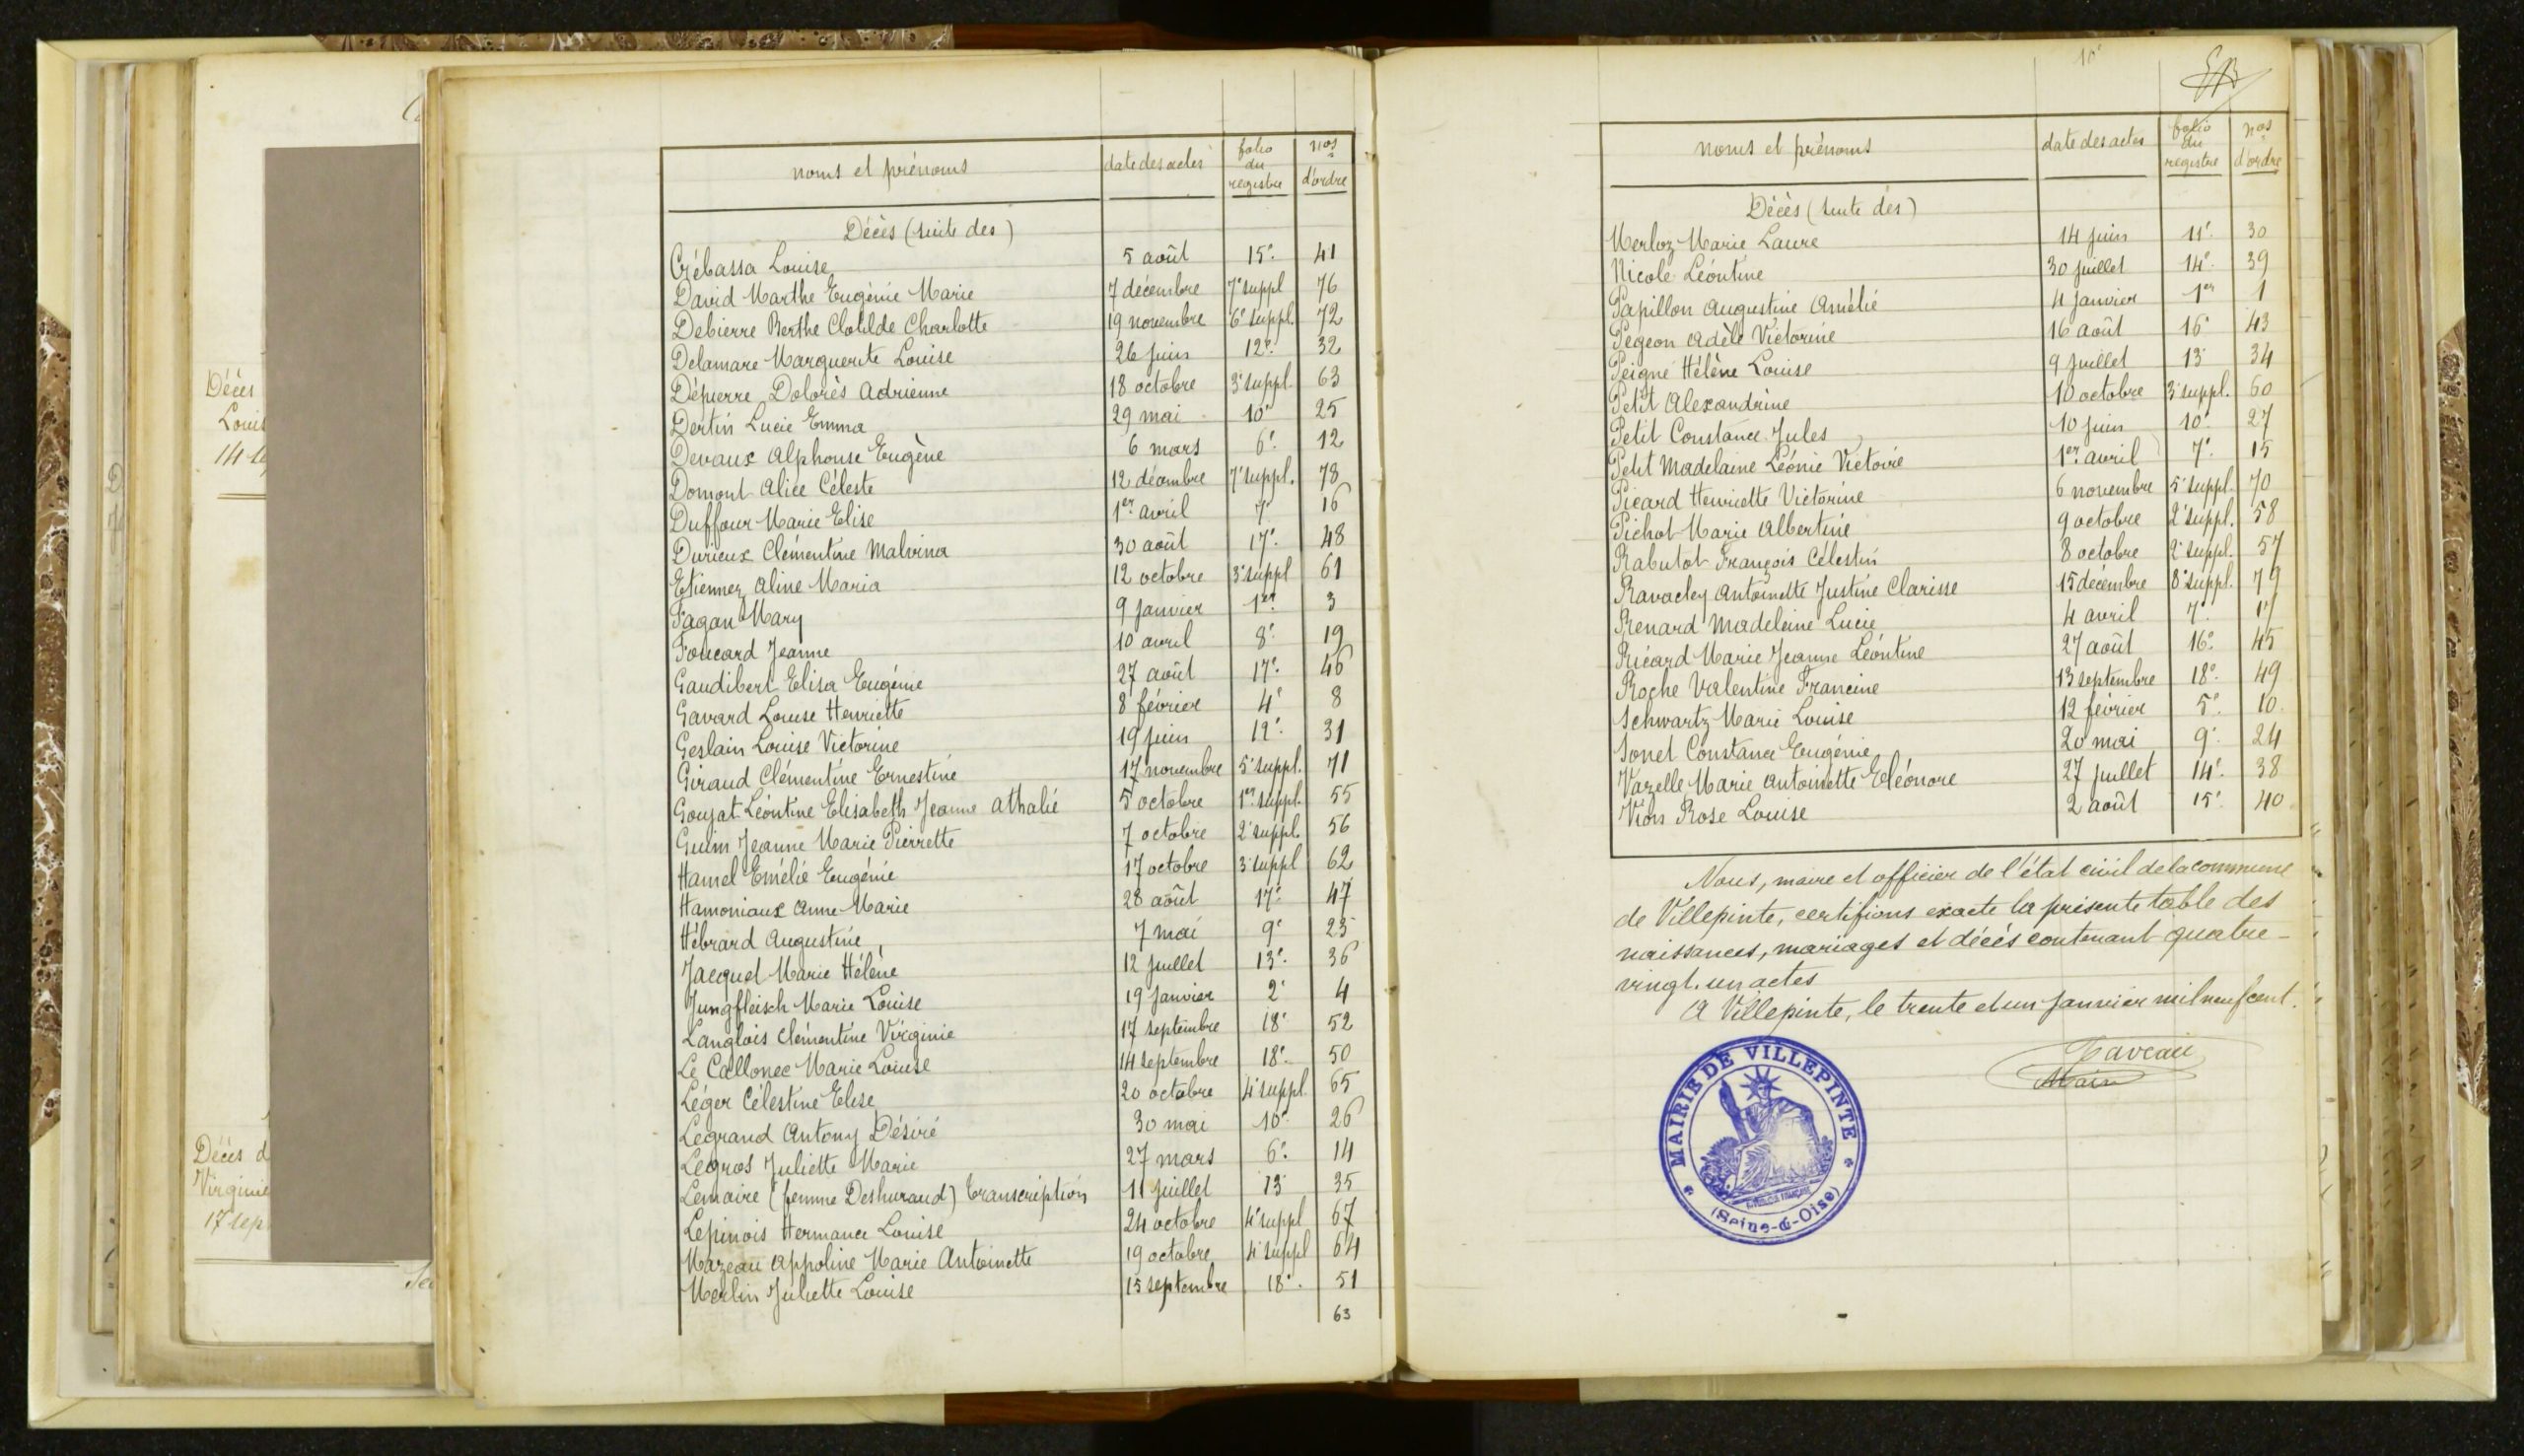 Décès
Louis
14 se
Décès d
Virginie
17 sep
noms et prénoms date des actes folio du registre nos d'ordre
Décès (suite des)
Crébassa Louise 5 août 15e. 41
David Marthe Eugénie Marie 7 décembre 7e suppl 76
Debierre Berthe Clotilde Charlotte 19 novembre 6e suppl. 72
Delamare Marguerite Louise 26 juin 12e. 32
Dépierre Dolorès Adrienne 18 octobre 3e suppl. 63
Dertin Lucie Emma 29 mai 10e 25
Devaux Alphonse Eugène 6 mars 6e. 12
Domont Alice Céleste 12 décembre 7e suppl. 78
Duffour Marie Elise 1er avril 7e 16
Durieux Clémentine Malvina 30 août 17e. 48
Etiennez Aline Maria 12 octobre 3e suppl 61
Fagan Mary 9 janvier 1er. 3
Foucard Jeanne 10 avril 8e. 19
Gaudibert Elisa Eugénie 27 août 17e. 46
Gavard Louise Henriette 8 février 4e 8
Geslain Louise Victorine 19 juin 12e. 31
Giraud Clémentine Ernestine 17 novembre 5e suppl. 71
Goujat Léontine Elisabeth Jeanne Athalie 5 octobre 1er suppl. 55
Guim Jeanne Marie Pierrette 7 octobre 2e suppl. 56
Hamel Emélie Eugénie 17 octobre 3e suppl 62
Hamoniaux Anne Marie 28 août 17e. 47
Hébrard Augustine 7 mai 9e 23
Jacquet Marie Hélène 12 juillet 13e. 36
Jungfleisch Marie Louise 19 janvier 2e 4
Langlois Clémentine Virginie 17 septembre 18e 52
Le Callonec Marie Louise 14 septembre 18e. 50
Léger Célestine Elise 20 octobre 4e suppl. 65
Legrand Antony Désiré 30 mai 10e. 26
Legros Juliette Marie 27 mars 6e. 14
Lemaire (femme Deshuraud) transcription 11 juillet 13 35
Lepinois Hermance Louise 24 octobre 4e suppl 67
Mazeau Appoline Marie Antoinette 19 octobre 4e suppl 64
Merlin Juliette Louise 15 septembre 18e. 51
63
noms et prénoms date des actes folio du registre nos d'ordre
Décès (suite des)
Merloz Marie Laure 14 juin 11e. 30
Nicole Léontine 30 juillet 14e. 39
Papillon Augustine Amélie 4 janvier 1er 1
Pegeon Adèle Victorine 16 août 16e 43
Peigné Hélène Louise 9 juillet 13 34
Petit Alexandrine 10 octobre 3e suppl. 60
Petit Constance Jules 10 juin 10e. 27
Petit Madelaine Léonie Victoire 1er avril 7e. 15
Picard Henriette Victorine 6 novembre 5e suppl. 70
Pichot Marie Albertine 9 octobre 2e suppl. 58
Rabutot François Célestin 8 octobre 2e suppl. 57
Ravacley Antoinette Justine Clarisse 15 décembre 8e suppl. 79
Renard Madeleine Lucie 4 avril 7e. 17
Ricard Marie Jeanne Léontine 27 août 16e. 45
Roche Valentine Francine 13 septembre 18e 49
Schwartz Marie Louise 12 février 5e. 10
Sonet Constance Eugénie 20 mai 9e. 24
Vazelle Marie Antoinette Eléonore 27 juillet 14e. 38
Vion Rose Louise 2 août 15e. 40
Nous, maire et officier de l'état civil de la commune
de Villepinte, certifions exacte la présente table des
naissances, mariages et décès contenant quatre-
vingt. un actes
A Villepinte, le trente et un janvier mil neuf cent.
Maire
MAIRIE DE VILLEPINTE
(Seine-&-Oise)